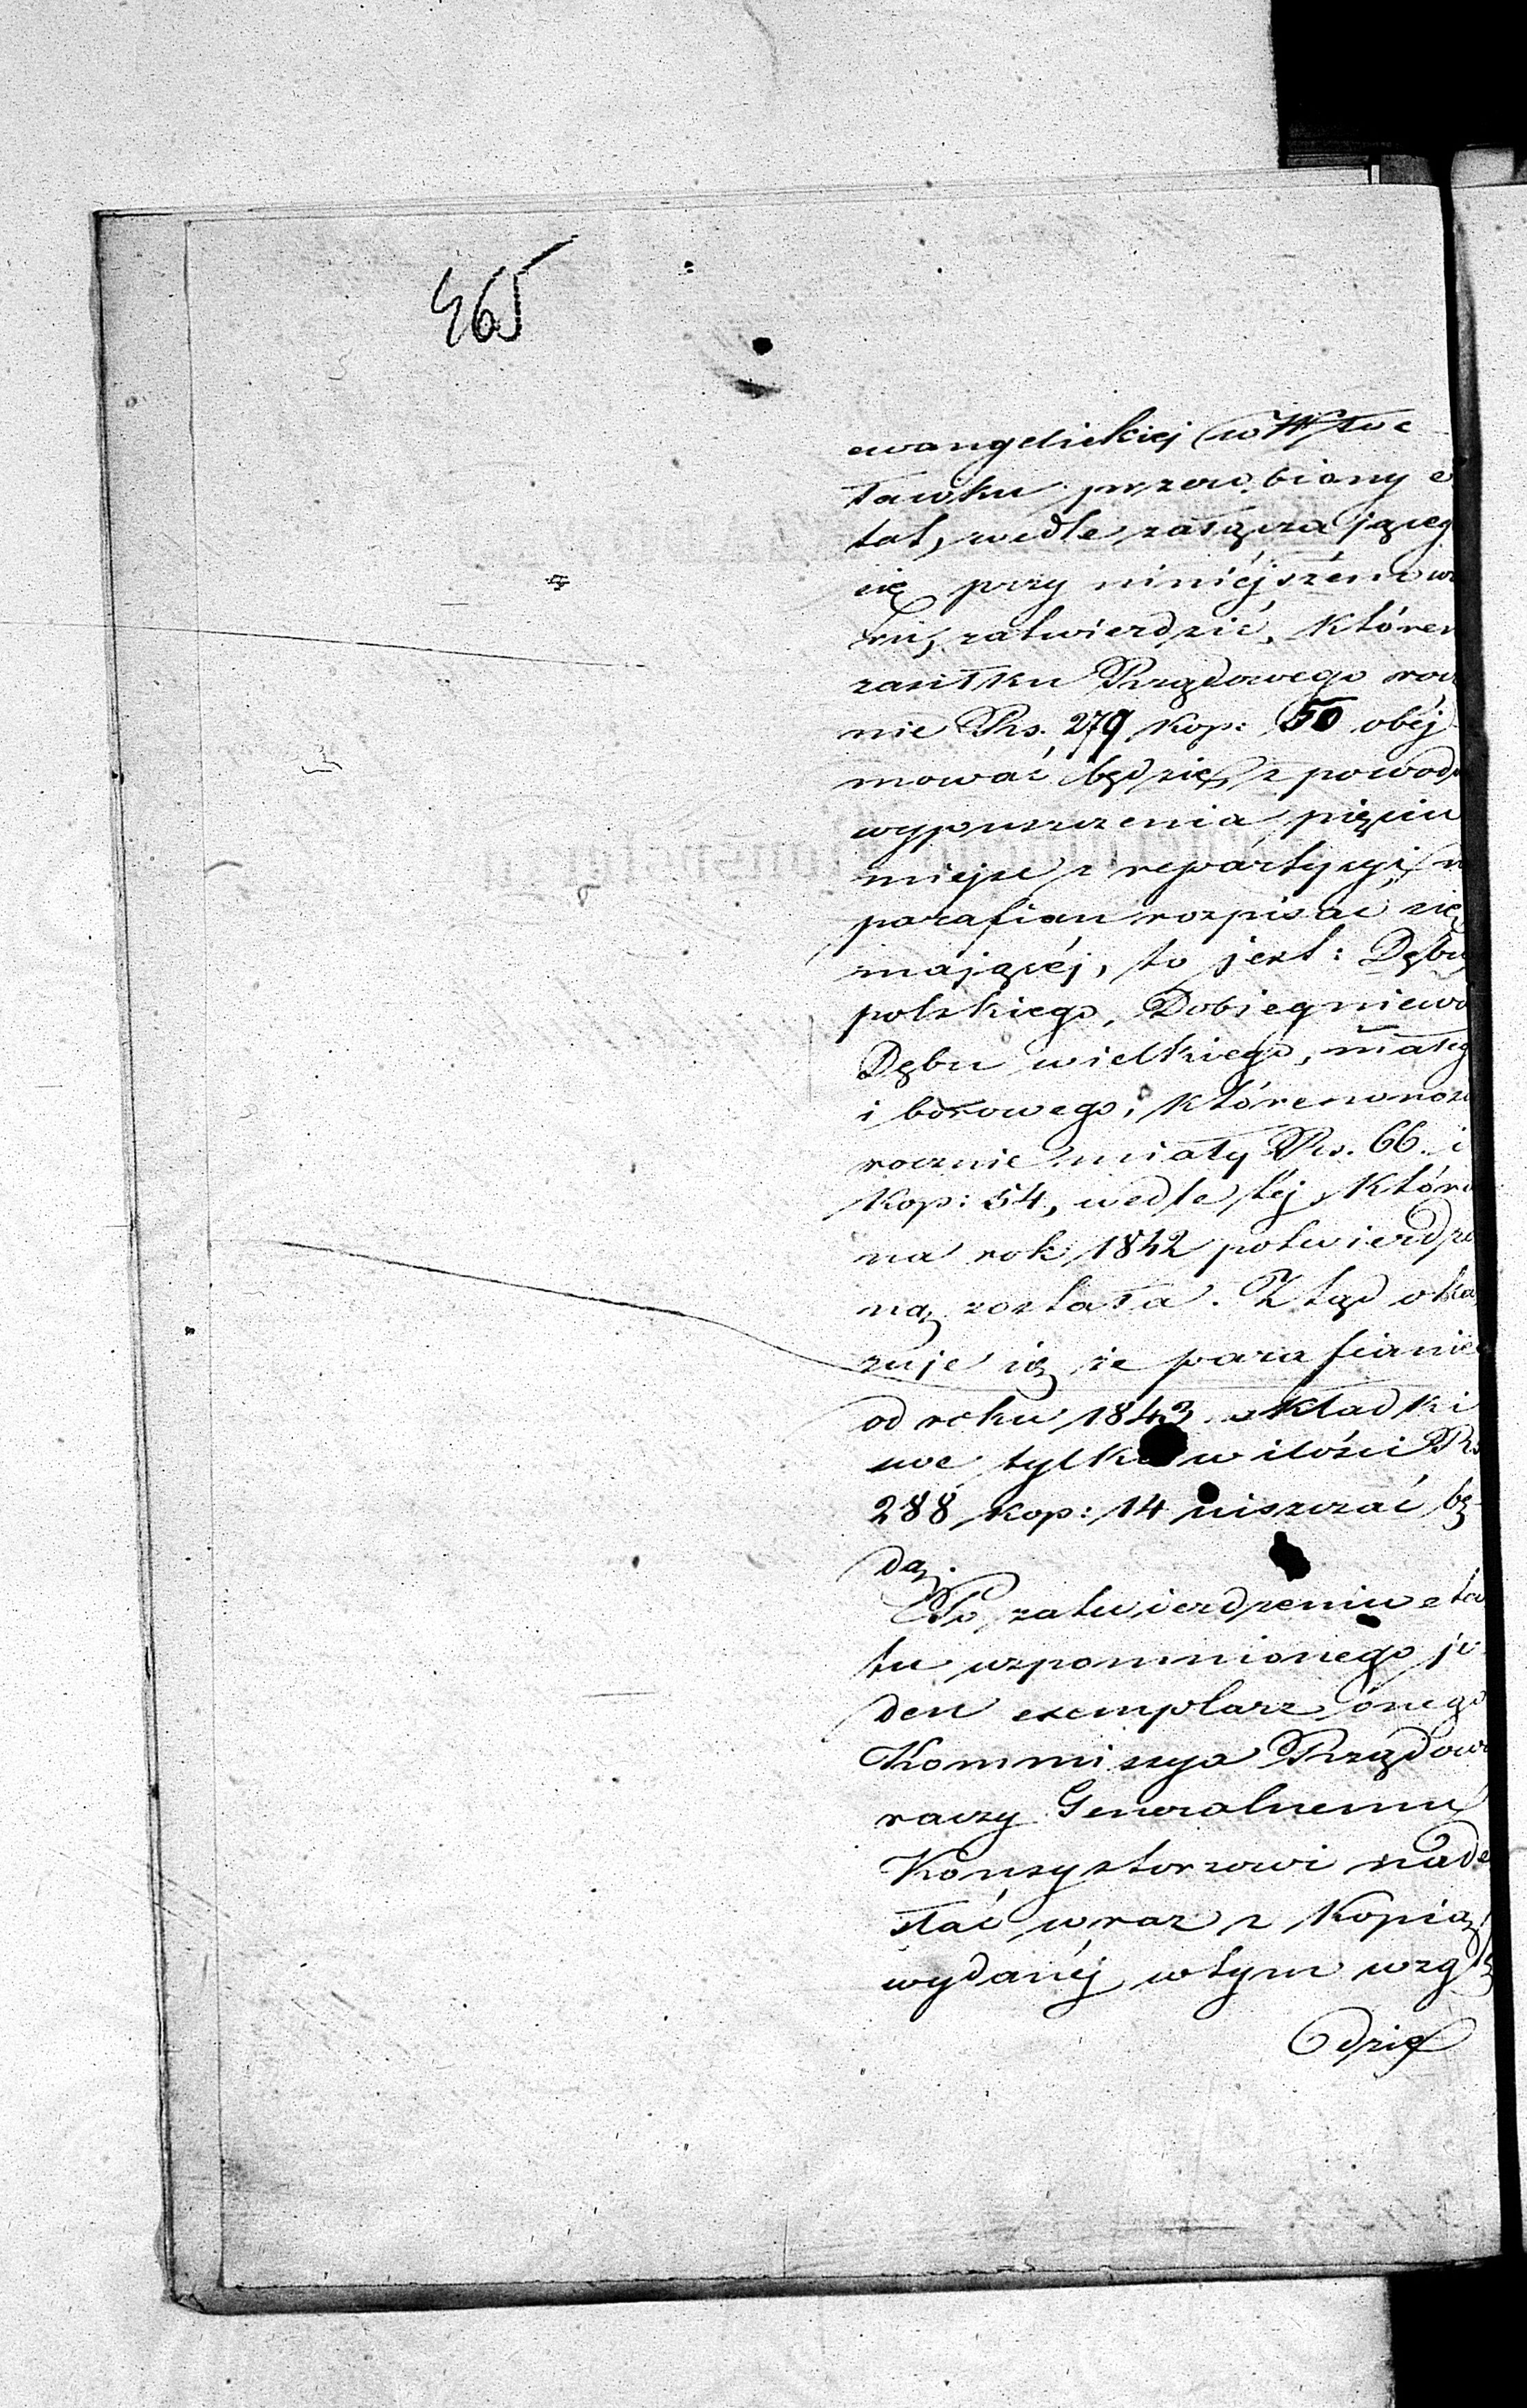 465
ewangelickiej w Włoc
ławku przerobiony e
tat, wedle załączającég
się przy niniéjszém w
ru, zatwierdzić, który
zasiłku Rządowego rocz
nie Rs. 279 kop: 50 obéj
mować będzie, z powodu
wypuszczenia pięciu
miejsc z repartycyi n
parafian rozpisać się
mającéj, to jest: Dębu
polskiego, Dobiegniewa
Dębu wielkiego, małeg
i borowego, które wnosi
rocznie miały Rs. 66. i
kop: 54, wedle téj, która
na rok 1842 potwierdzo
ną została. Ztąd oka
zuje się że parafianie
od roku 1843 składki
swe tylko w ilości Rs
288 kop: 14 uiszczać bę
dą.
Po zatwierdzeniu eta
tu wspomnionego je
den exemplarz onego
Kommissya Rządow
raczy Generalnemu
Konsystorzowi nade
słać wraz z kopią
wydanéj w tym wzglę
dzie